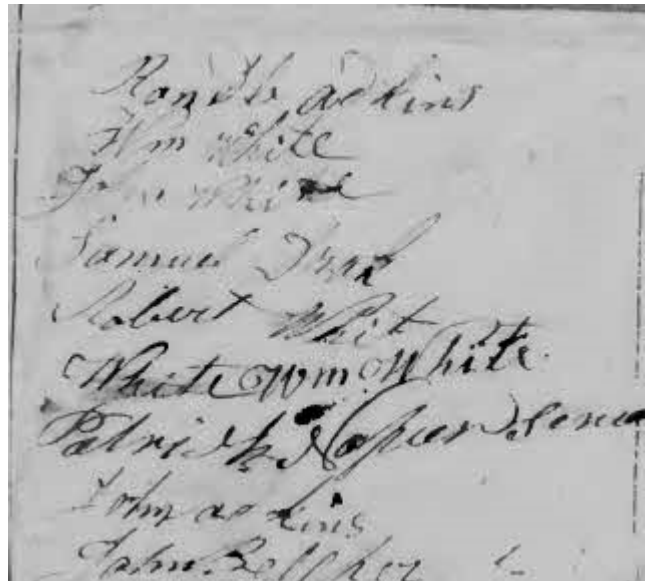 adkins
Wm White
John White
Samuel
Robert Whit
White Wm White
Patrick Napier Senior
John adkins
John Belcher